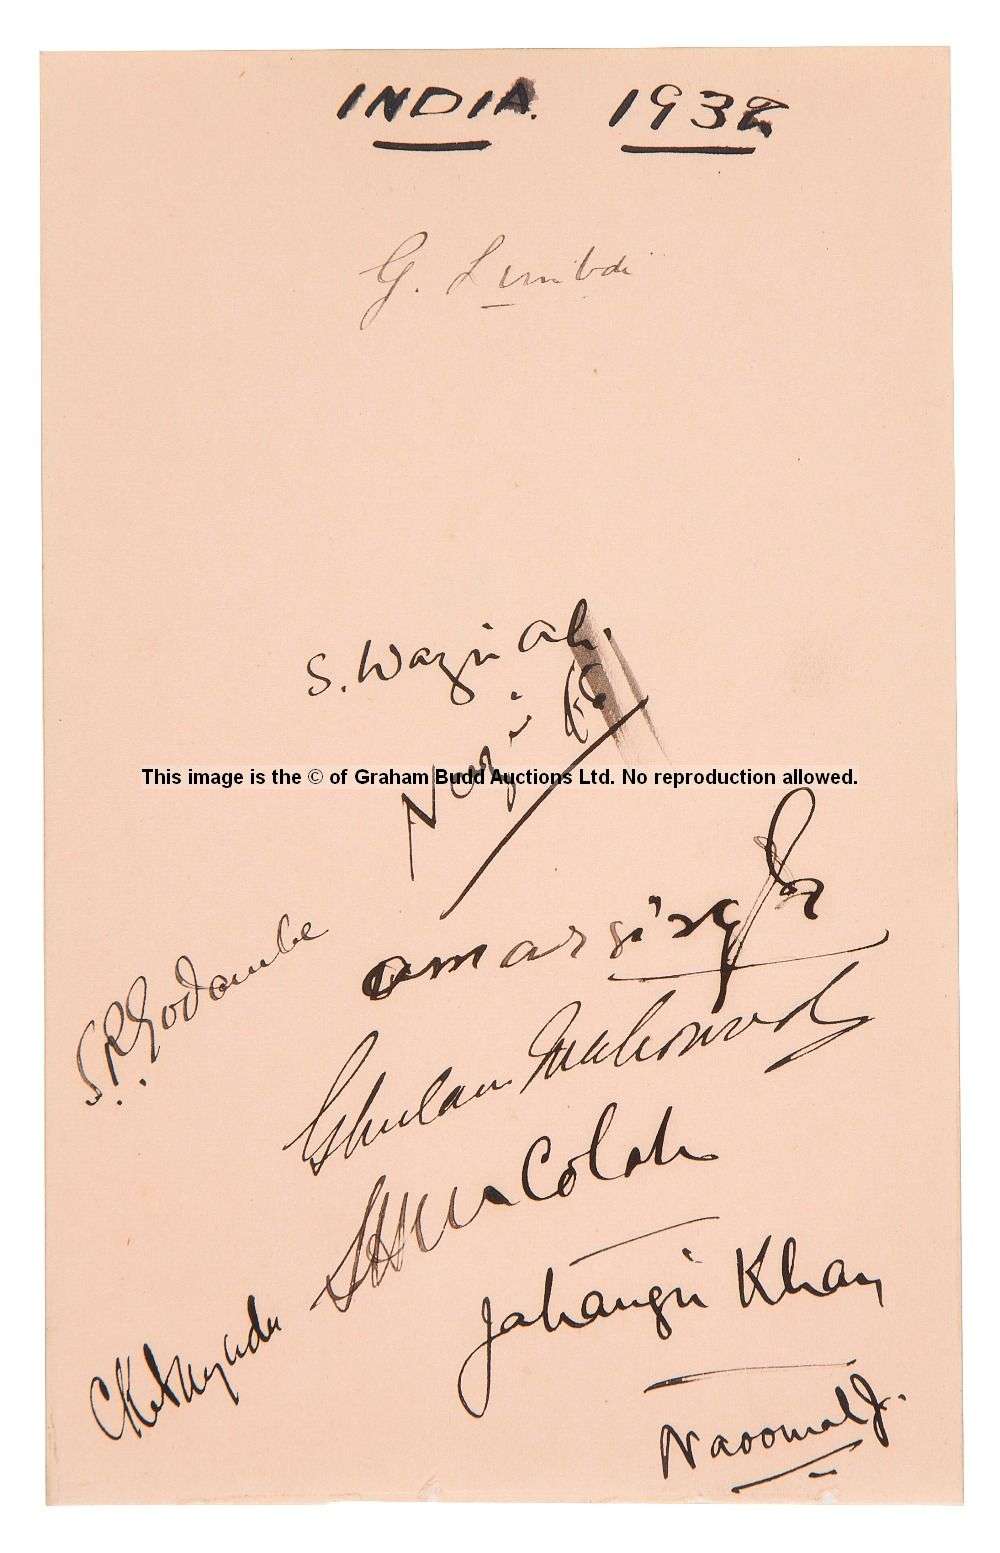 INDIA. 1932
G. Limbdi
S. Wazir Ali.
Nazir Ali
This image is the © of Graham Budd Auctions Ltd. No reproduction allowed.
amarsingh
S. R. Godambe
Ghulam Mahomed
SHM Colah
Jahangir Khan
CK Nayudu
Naoomal J.